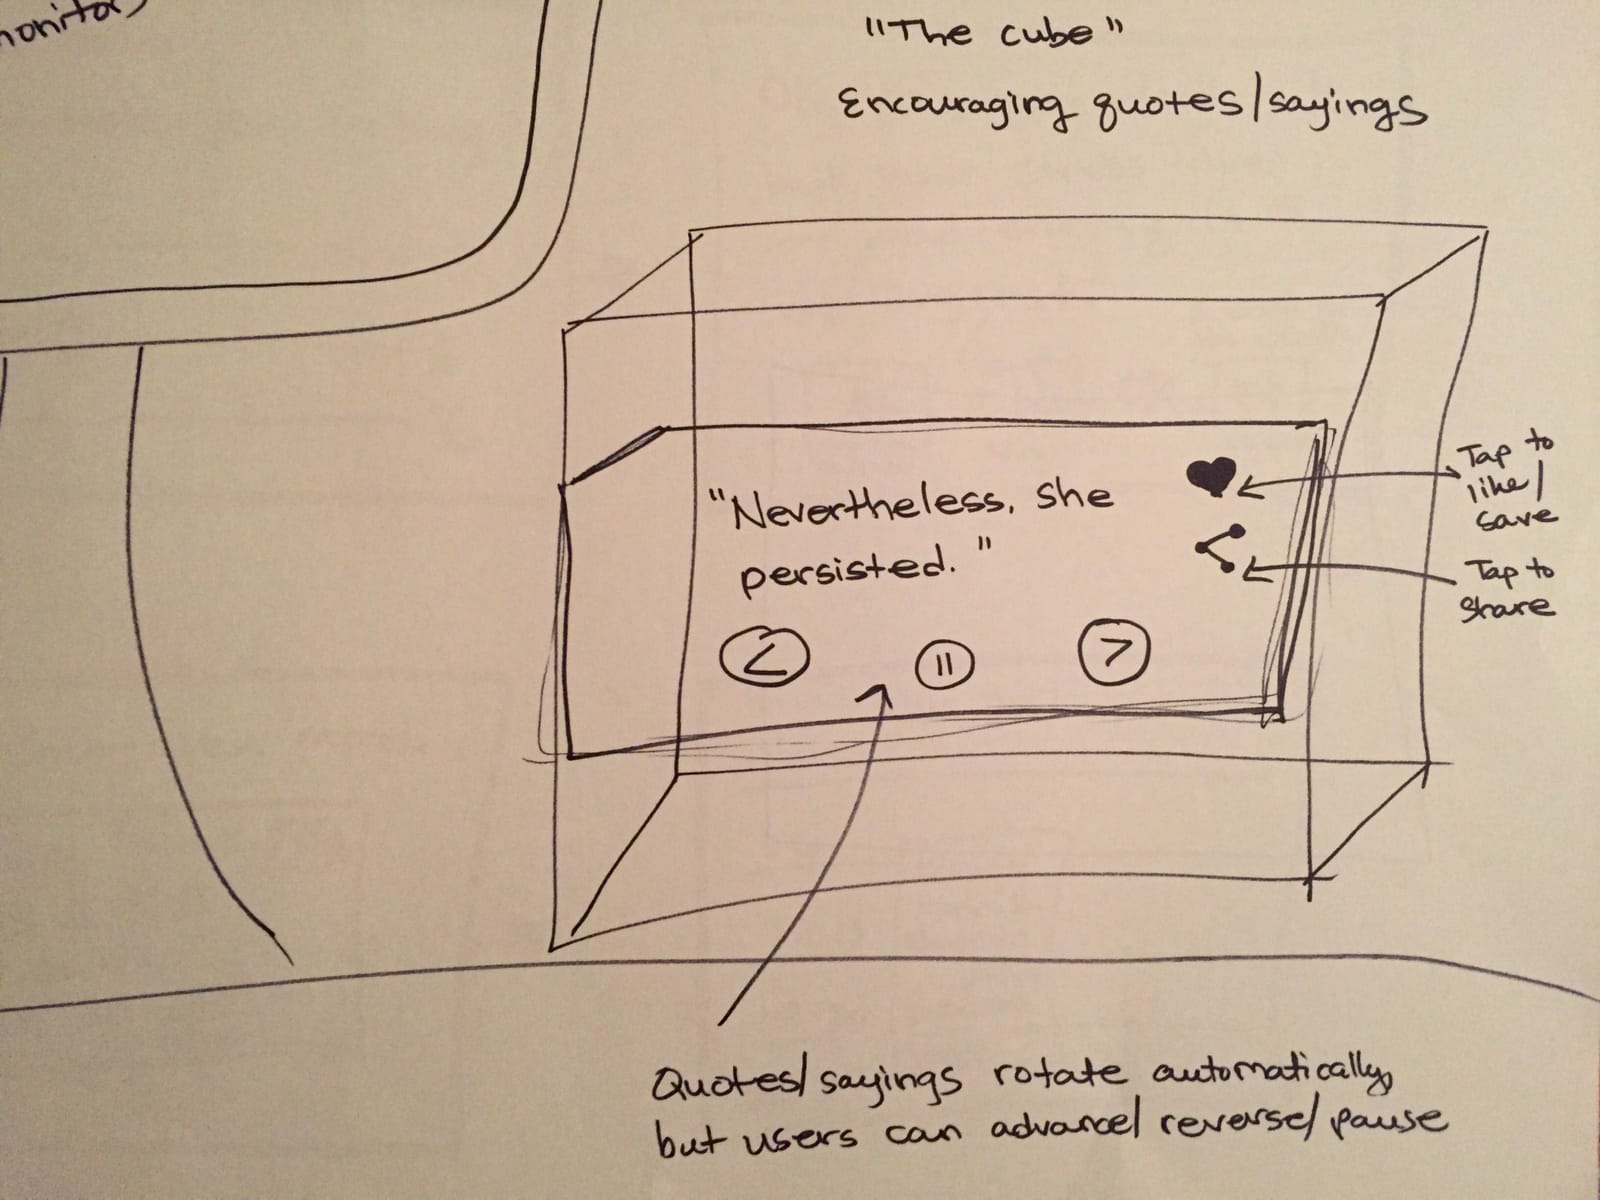 monitor)
"The cube"
Encouraging quotes/sayings
"Nevertheless, she
persisted."
<
||
>
Tap to
like/
save
Tap to
share
Quotes/sayings rotate automatically,
but users can advance/reverse/pause